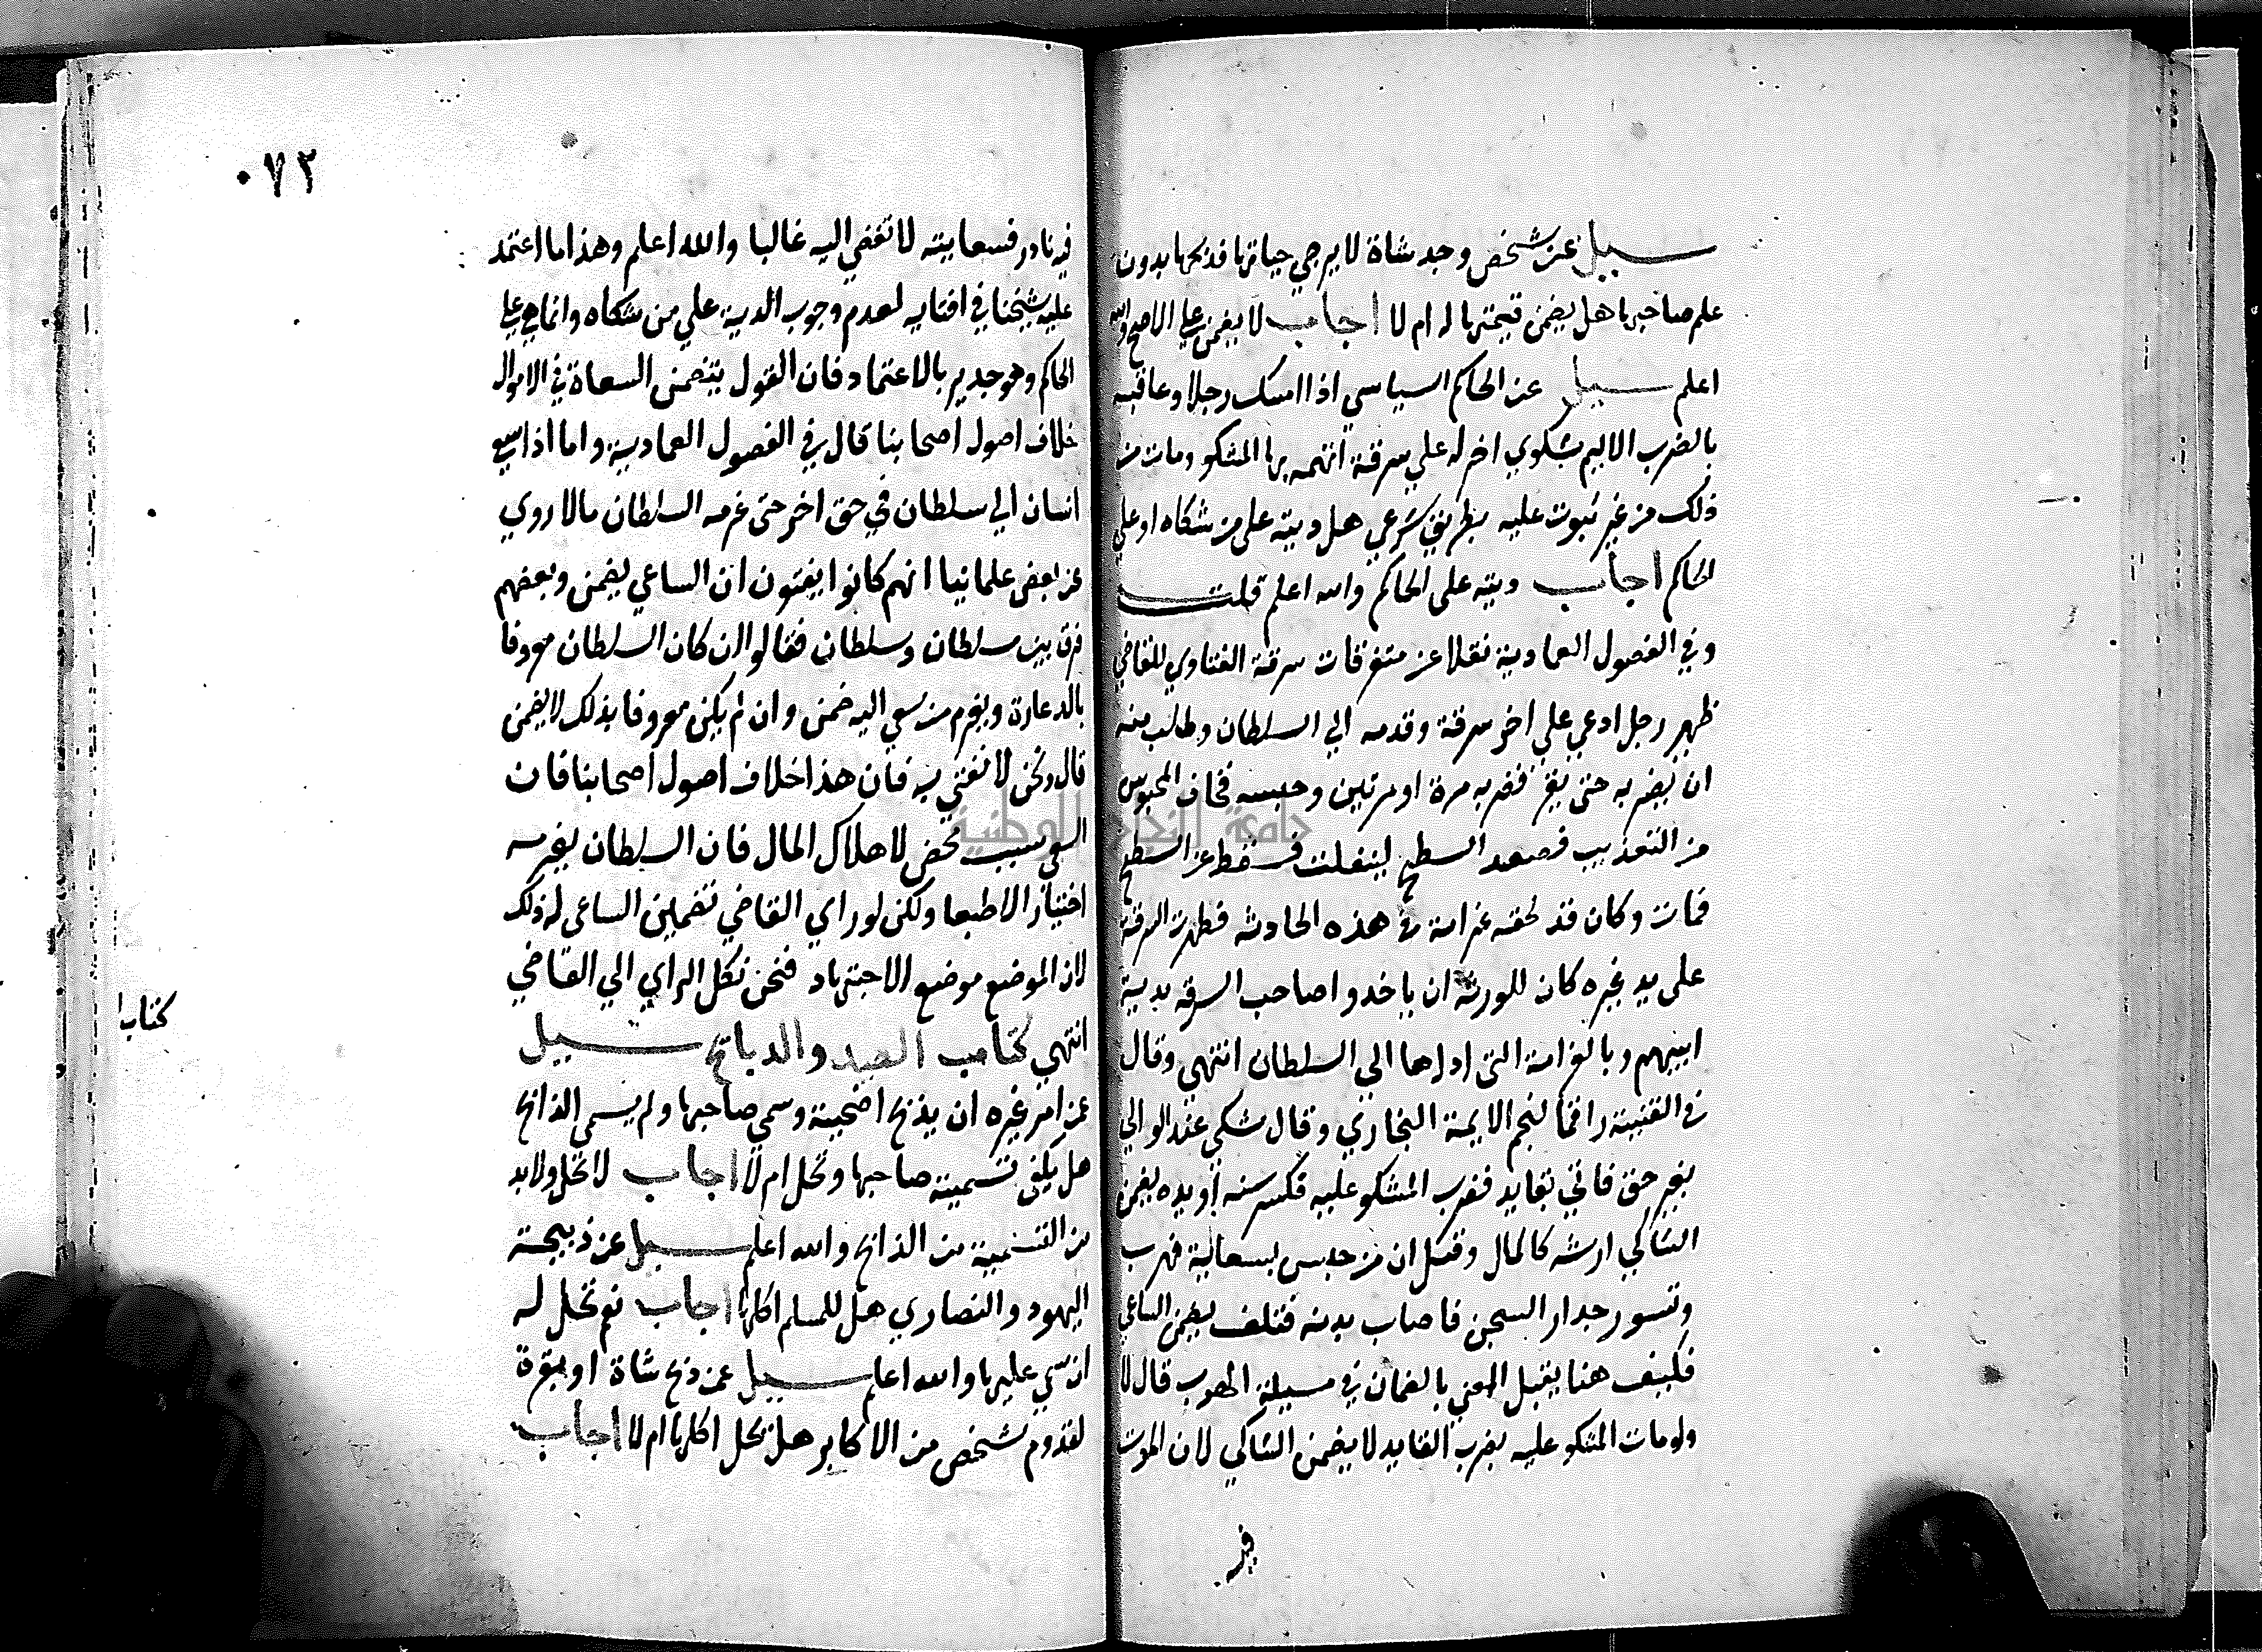 سيل عن شخص وجد شاة لا يرجي حياتها فذبحها بدون
علم صاحبها هل يضمن قيمتها له ام لا اجاب لا يضمن علي الاصح والله
اعلم سيل عن الحاكم السياسي اذا امسك رجلا وعاقبه
بالضرب الاليم بشكوي اخر له علي سرقة اتهمه بها المشكو ومات من
ذلك من غير ثبوت عليه بطريق شرعي هل ديته على من شكاه او على
الحاكم اجاب ديته على الحاكم والله اعلم قلت
وفي الفصول العمادية نقلا عن متفرقات سرقة الفتاوي للقاضي
ظهير رجل ادعي علي اخر سرقة وقدمه الي السلطان وطلب منه
ان يضربه حتى يقر فضربه مرة او مرتين وحبسه فخاف المحبوس
من التعذيب فصعد السطح لينفلت فسقط عن السطح
فمات وكان قد لحقه غرامة في هذه الحادثه فظهرت السرقة
على يد غيره كان للورثة ان ياخدوا صاحب السرقه بدية
ابيهم وبالغرامة التى اداها الي السلطان انتهي وقال
في القنية راقما لنجم الايمة البخاري وقال شكي عند الوالي
بغير حق فاتي بقايد فضرب المشكو عليه فكسر سنه او يده يضمن
الشاكي ارشه كالمال وقيل ان من حبس بسعاية فهرب
وتسور جدار السجن فاصاب بدنه فتلف يضمن الساعي
فكيف هنا يقبل المفتي بالضمان في مسيلة الهرب قال لا
ولو مات المشكو عليه بضرب القايد لا يضمن الشاكي لان الموت
فيه
٠٧٢
فيه نادر فسعايته لا تفضي اليه غالبا والله اعلم وهذا ما اعتمد
عليه شيخنا في افتايه لعدم وجوب الدية علي من شكاه وانما هي علي
الحاكم وهو جدير بالاعتماد فان القول بتضمن السعاة في الاموال
خلاف اصول اصحابنا قال في الفصول العمادية واما اذا سعي
انسان الي سلطان في حق اخر حتى غرمه السلطان مالا روي
عن بعض علمانيا انهم كانوا يفتون ان الساعي يضمن وبعضهم
فرق بين سلطان وسلطان فقالوا ان كان السلطان معروفا
بالدعارة ويغرم من سعي اليه ضمن وان لم يكن معروفا بذلك لا يضمن
قال ونحن لا نفتي به فان هذا خلاف اصول اصحابنا فان
السعي سبب محض لاهلاك المال فان السلطان يغرمه
اختيارا لا طبعا ولكن لو راي القاضي تضمين الساعى له ذلك
لان الموضع موضع الاجتهاد فنحن نكل الراي الي القاضي
انتهي كتاب الصيد والدبايح سيل
عن امر غيره ان يذبح اضحيته وسمي صاحبها ولم يسمي الذابح
هل يكفي تسمية صاحبها وتحل ام لا اجاب لا تحل ولا بد
من التسمية من الذابح والله اعلم سيل عن ذبيحة
اليهود والنصاري هل للمسلم اكلها اجاب نعم تحل له
ان سمي عليها والله اعلم سيل عمن ذبح شاة او بقرة
لقدوم شخص من الاكابر هل يحل اكلها ام لا اجاب
كتاب
جامعة النجاح الوطنية